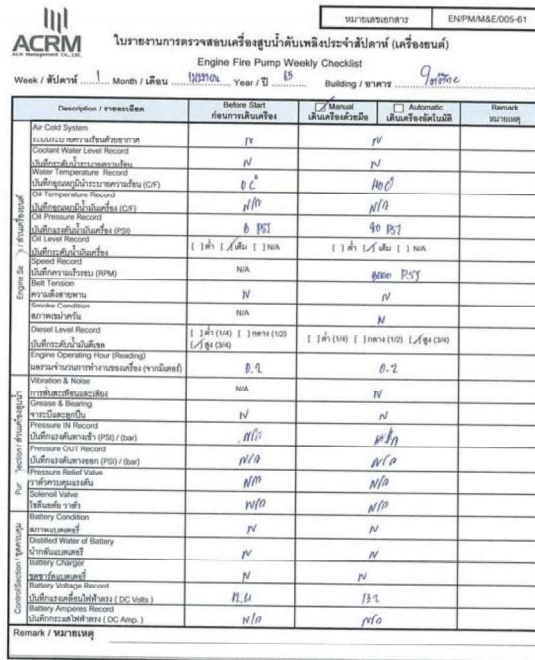 หมายเลขเอกสาร EN/PM/M&E/005-61
ACRM
ACR Management Co., Ltd.
ใบรายงานการตรวจสอบเครื่องสูบน้ำดับเพลิงประจำสัปดาห์ (เครื่องยนต์)
Engine Fire Pump Weekly Checklist
Week / สัปดาห์ 1 Month / เดือน เมษายน Year / ปี 65 Building / อาคาร
Description / รายละเอียด Before Start ก่อนการเดินเครื่อง Manual เดินเครื่องด้วยมือ Automatic เดินเครื่องอัตโนมัติ Remark หมายเหตุ
Air Cold System
ระบบระบายความร้อนด้วยอากาศ N N
Coolant Water Level Record
บันทึกระดับน้ำระบายความร้อน N N
Water Temperature Record
บันทึกอุณหภูมิน้ำระบายความร้อน (C/F) 0 C° 40 C°
Oil Temperature Record
บันทึกอุณหภูมิน้ำมันเครื่อง (C/F) N/A N/A
Oil Pressure Record
บันทึกแรงดันน้ำมันเครื่อง (PSI) 0 PSI 90 PSI
Oil Level Record
บันทึกระดับน้ำมันเครื่อง [ ] ต่ำ [/] เต็ม [ ] N/A [ ] ต่ำ [/] เต็ม [ ] N/A
Speed Record
บันทึกความเร็วรอบ (RPM) N/A PSI
Belt Tension
ความตึงสายพาน N N
Smoke Condition
สภาพเขม่าควัน N/A N
Diesel Level Record [ ] ต่ำ (1/4) [ ] กลาง (1/2) [ ] ต่ำ (1/4) [ ] กลาง (1/2) [/] สูง (3/4)
บันทึกระดับน้ำมันดีเซล [/] สูง (3/4)
Engine Operating Hour (Reading)
ผลรวมจำนวนการทำงานของเครื่อง (จากมิเตอร์) 0.2 0.2
Vibration & Noise
การสั่นสะเทือนและเสียง N/A N
Grease & Bearing
จาระบีและลูกปืน N N
Pressure IN Record
บันทึกแรงดันทางเข้า (PSI) / (bar) N/A
Pressure OUT Record
บันทึกแรงดันทางออก (PSI) / (bar) N/A N/A
Pressure Relief Valve
วาล์วควบคุมแรงดัน N/A N/A
Solenoil Valve
โซลินอยด์ วาล์ว N/A N/A
Battery Condition
สภาพแบตเตอรี่ N N
Distilled Water of Battery
น้ำกลั่นแบตเตอรี่ N N
Battery Charger
ชุดชาร์ตแบตเตอรี่ N N
Battery Voltage Record
บันทึกแรงเคลื่อนไฟฟ้าตรง ( DC Volts )
Battery Amperes Record
บันทึกกระแสไฟฟ้าตรง ( DC Amp. ) N/A N/A
Remark / หมายเหตุ